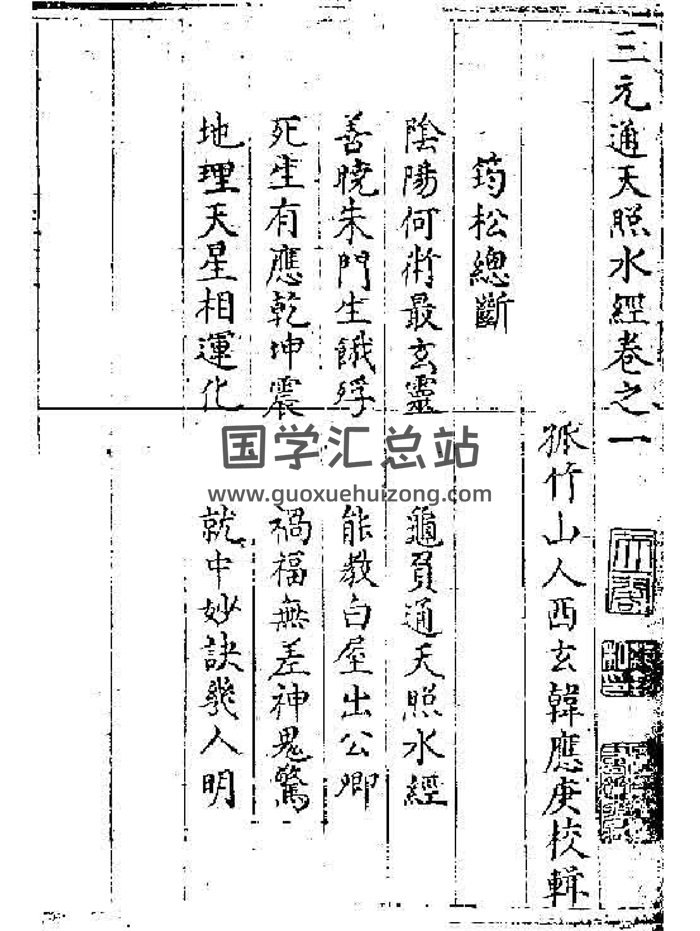 三元通天照水經卷之一
孤竹山人西玄韓應庚校輯
筠松總斷
陰陽何術最玄靈 龜負通天照水經
善曉朱門生餓殍 能教白屋出公卿
死生有應乾坤震 禍福無差神鬼驚
地理天星相運化 就中妙訣幾人明
国学汇总站
www.guoxuehuizong.com